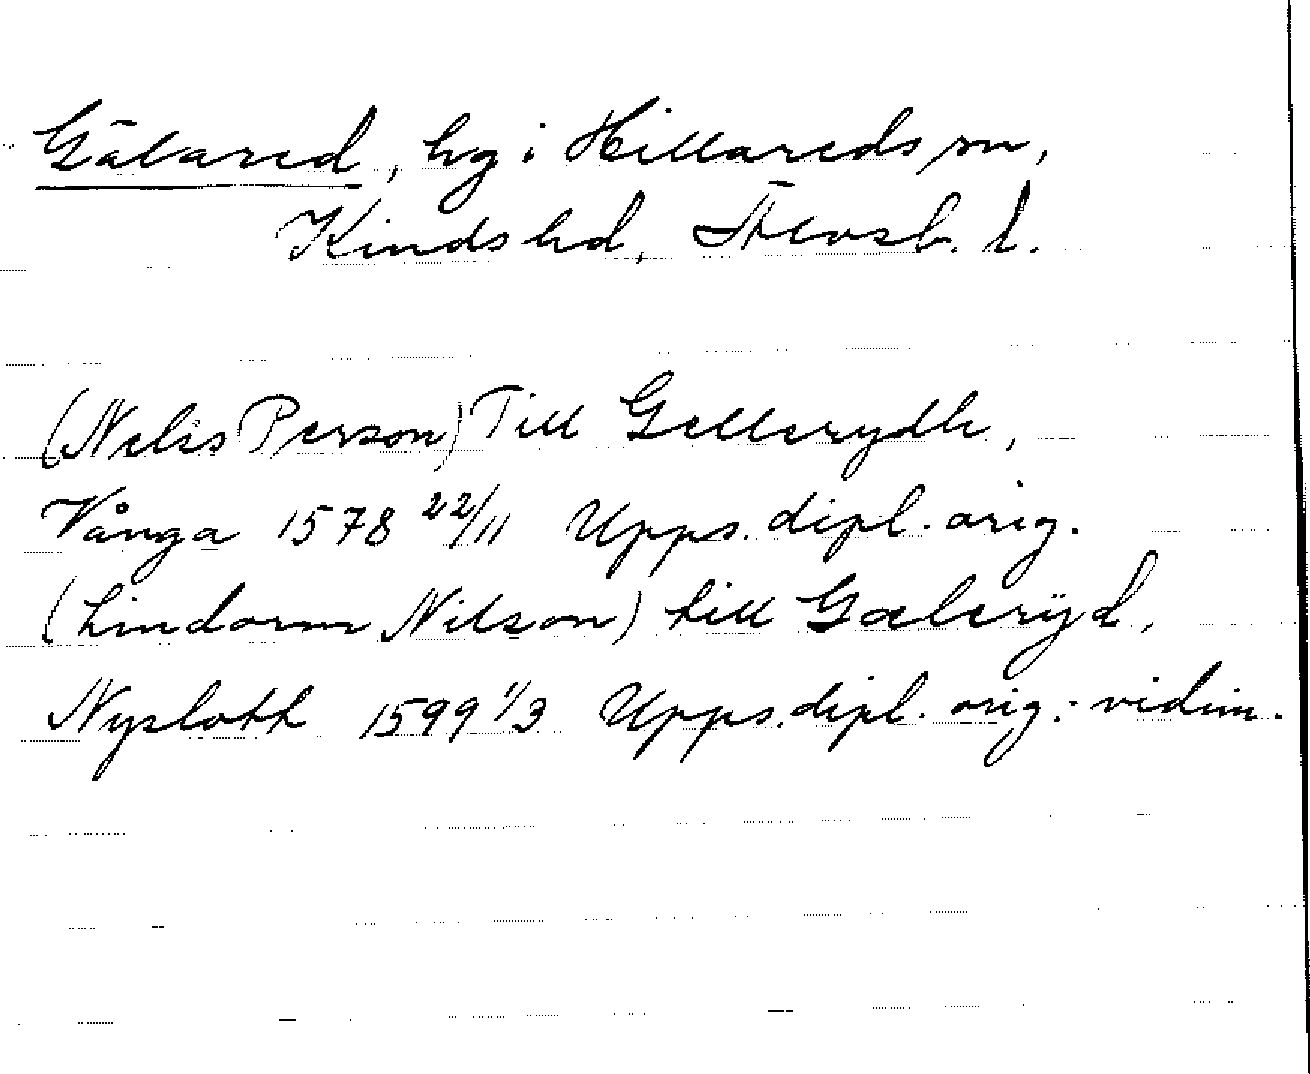 Gälared, by i Hillareds sn,
Kinds hd, Älvsb. l.
(Nelss Person) Till Gellerydh,
Vånga 1578 22/11 Upps. dipl. orig.
(Lindorm Nilson) till Gæleryd,
Nyslott 1599 1/3 Upps. dipl. orig: vidim.